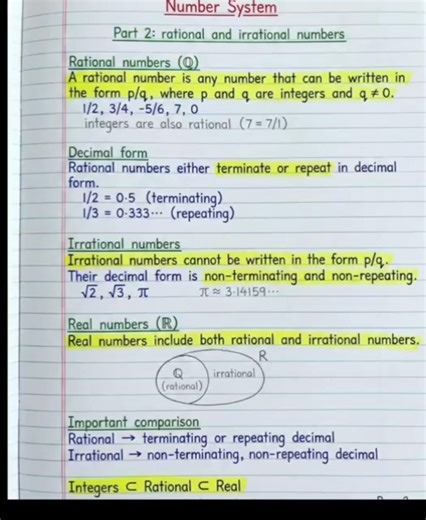 Number System
Part 2: rational and irrational numbers
Rational numbers (ℚ)
A rational number is any number that can be written in
the form p/q, where p and q are integers and q ≠ 0.
1/2, 3/4, -5/6, 7, 0
integers are also rational (7 = 7/1)
Decimal form
Rational numbers either terminate or repeat in decimal
form.
1/2 = 0·5 (terminating)
1/3 = 0·333··· (repeating)
Irrational numbers
Irrational numbers cannot be written in the form p/q.
Their decimal form is non-terminating and non-repeating.
√2, √3, π π ≈ 3·14159···
Real numbers (ℝ)
Real numbers include both rational and irrational numbers.
R
Q irrational
(rational)
Important comparison
Rational → terminating or repeating decimal
Irrational → non-terminating, non-repeating decimal
Integers ⊂ Rational ⊂ Real